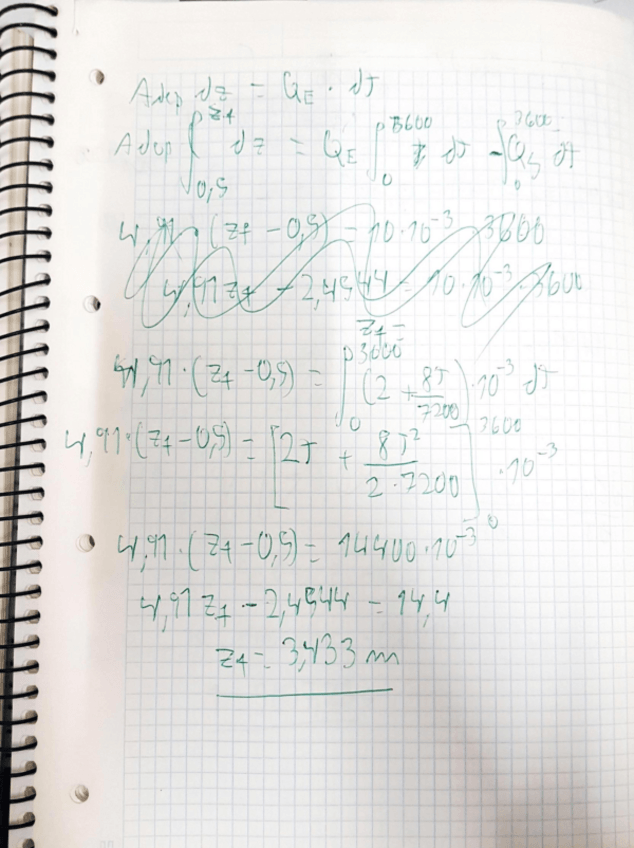 Adep dz = QE · dt
Adep ∫_{0,5}^{zf} dz = QE ∫_0^{3600} dt - ∫_0^{3600} QS dt
4,91 · (zf - 0,5) = 10·10^-3 · 3600
4,91 zf - 2,4544 = 10·10^-3 · 3600
zf =
4,91 · (zf - 0,5) = ∫_0^{3600} (2 + 8t/7200) · 10^-3 dt
4,91 · (zf - 0,5) = [2t + 8t²/(2·7200)]_0^{3600} · 10^-3
4,91 · (zf - 0,5) = 14400·10^-3
4,91 zf - 2,4544 = 14,4
zf = 3,433 m